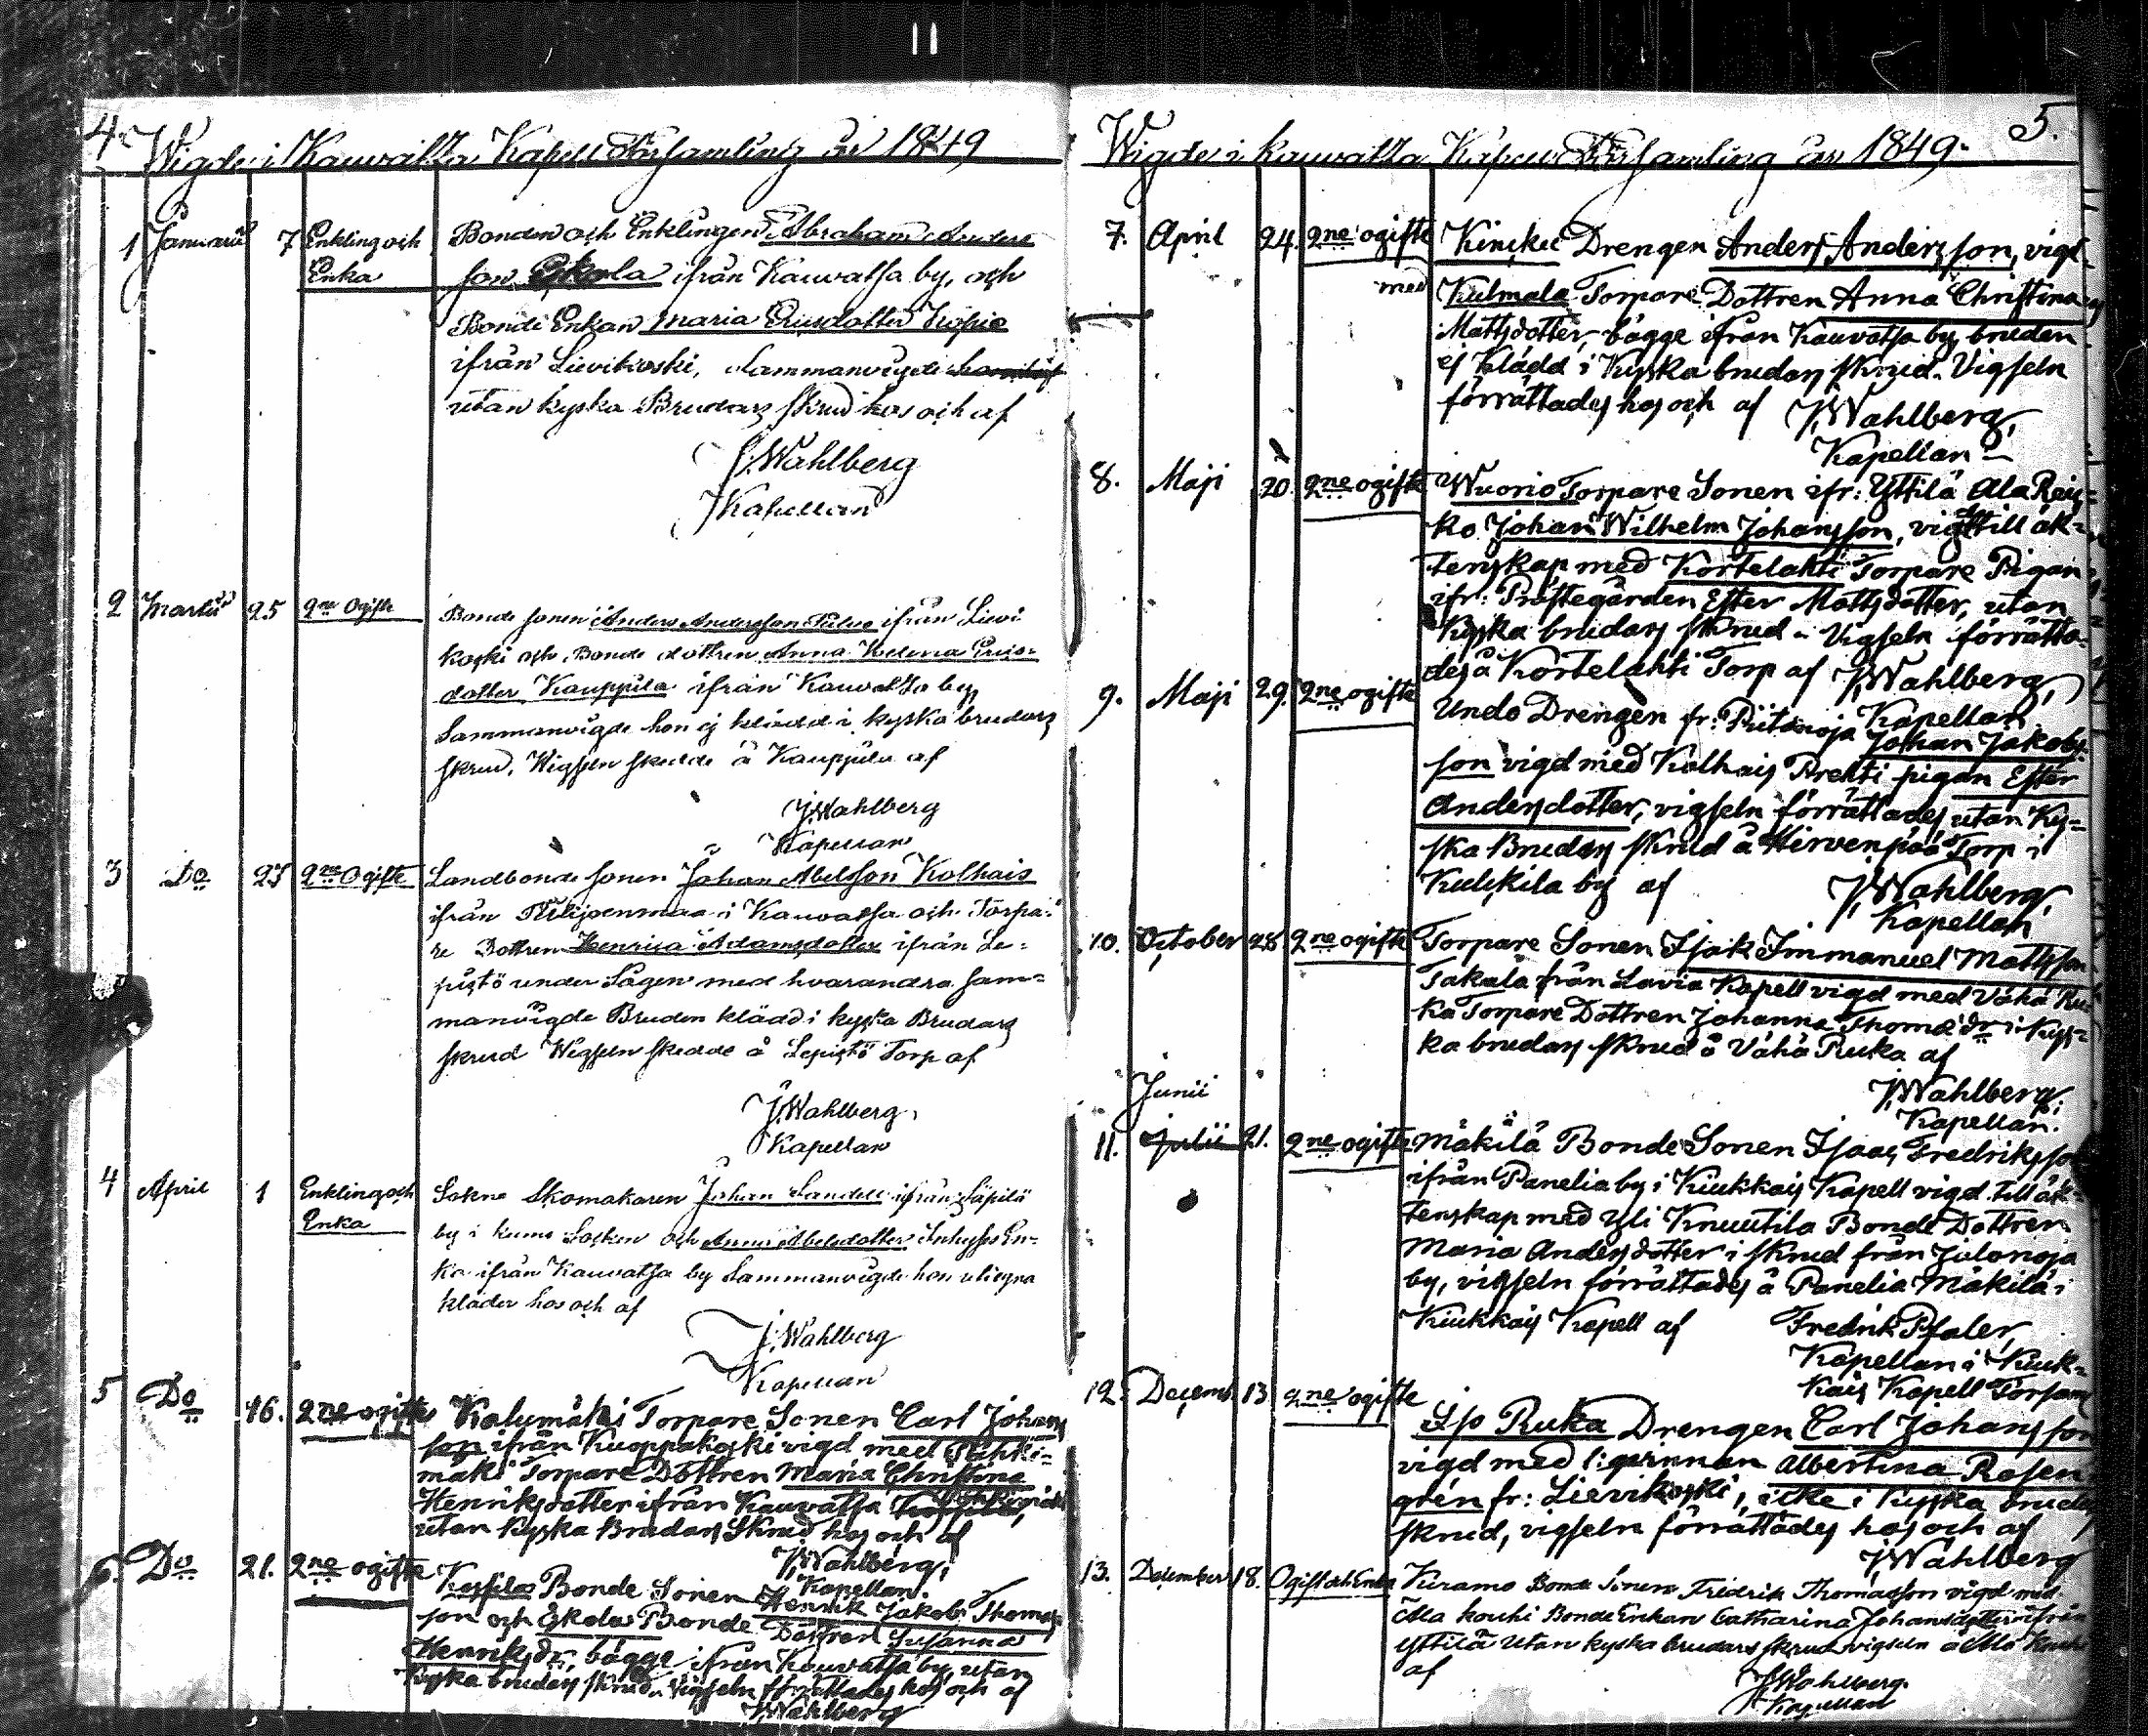 4. Wigde i Kauvatsa Kapell Församling år 1849
1 Januarii 7 Enkling och Enka
Bonden och Enklingen Abraham Anders
son Eskola ifrån Kauvatsa by, och
Bonde Enkan Maria Ericsdotter
ifrån Lievikoski, Sammanvigde
utan kyska Brudars skrud hos och af
J. Wahlberg
Kapellan
2 Martii 25 2ne Ogifte
Bonde sonen Anders Andersson ifrån Lievi
koski och Bonde dottren Anna Helena Erics-
dotter Kauppila ifrån Kauvatsa by,
Sammanvigde hon ej klädd i kyska brudars
skrud, Wigseln skedde å Kauppila af
J. Wahlberg
Kapellan
3 Do 27 2ne Ogifte
Landbonde sonen Johan Abelsson Kolhais
ifrån i Kauvatsa och Torpa-
re Dottren Henrica Adamsdotter ifrån Le=
pistö under Sågen med hvarandra sam=
manvigde Bruden klädd i kyska Brudars
skrud Wigseln skedde å Lepistö Torp af
J. Wahlberg,
Kapellan
4 April 1 Enkling och Enka
Sokne Skomakaren Johan Sandell ifrån Säpilä
by i Kumo Socken och Anna Abelsdotter Inhyses En-
ka ifrån Kauvatsa by Sammanvigde hon i egna
kläder hos och af
J. Wahlberg
Kapellan
5 Do 16. 2ne ogifte
Kalumäki Torpare Sonen Carl Johans
son ifrån Kuoppakoski vigd med
mäki Torpare Dottren Maria Christina
Henriksdotter ifrån Kauvatsa
utan Kyska Brudars Skrud hos och af
J. Wahlberg,
Kapellan.
6. Do 21. 2ne ogifte
Bonde Sonen Henrik Jakob Thomas
son och Eskola Bonde Dottren Susanna
Henriksdr, bägge ifrån Kauvatsa by, utan
Kyska brudars skrud. Vigseln förrättades hos och af
J. Wahlberg
Wigde i Kauvatsa Kapell Församling år 1849. 5.
7. April 24. 2ne ogifte
Drengen Anders Andersson, vigd
med Kulmala Torpare Dottren Anna Christina
Mattsdotter, bägge ifrån Kauvatsa by, bruden
ej Klädd i Kyska brudars skrud. Vigseln
förrättades hos och af J. Wahlberg,
Kapellan
8. Maji 20. 2ne ogifte
Wuorio Torpare Sonen ifr: Yttilä Ala Rei=
ko Johan Wilhelm Johansson, vigd till äk=
tenskap med Kortelahti Torpare Pigan
ifr: Prästegården Ester Mattsdotter, utan
Kyska brudars skrud. Vigseln förrätta-
des å Kortelahti Torp af J. Wahlberg,
Kapellan.
9. Maji 29. 2ne ogifte
Undo Drengen fr: Piitanoja Johan Jakobs
son vigd med Kolhais Prehti pigan Ester
Andersdotter, vigseln förrättades utan Ky=
ska Brudars skrud å Hirvenpää Torp i
Kulkila by af J. Wahlberg,
Kapellan
10. October 28 2ne ogifte
Torpare Sonen Isak Immanuel Mattsson
Takala från Lavia Kapell vigd med Vähä Ru
ka Torpare Dottren Johanna Thomæ dr i Kys=
ka brudars skrud å Vähä Ruka af
J. Wahlberg,
Kapellan.
Junii
11. Julii 21. 2ne ogifte
Mäkilä Bonde Sonen Isaac Fredriksson
ifrån Panelia by i Kiukkais Kapell vigd till äk=
tenskap med Yli Knuutila Bonde Dottren
Maria Andersdotter i skrud från Jalonoja
by, vigseln förrättades å Panelia Mäkilä i
Kiukkais Kapell af Fredrik Pfaler,
Kapellan i Kiuk=
kais Kapell Församl
12. Decemb 13 2ne ogifte
Iso Ruka Drengen Carl Johansson
vigd med Albertina Rosen
grén fr: Lievikoski, icke i Kyska brudars
skrud, vigseln förrättades hos och af
J. Wahlberg
13. December 18. Ogift och Enka
Kuramo Bonde Sonen Fredrik Thomasson vigd med
Ala Kouhi Bonde Enkan Catharina Johansdotter ifrån
Yttilä utan kyska brudars skrud vigseln å Ala Kouhi
af
J. Wahlberg.
Kapellan